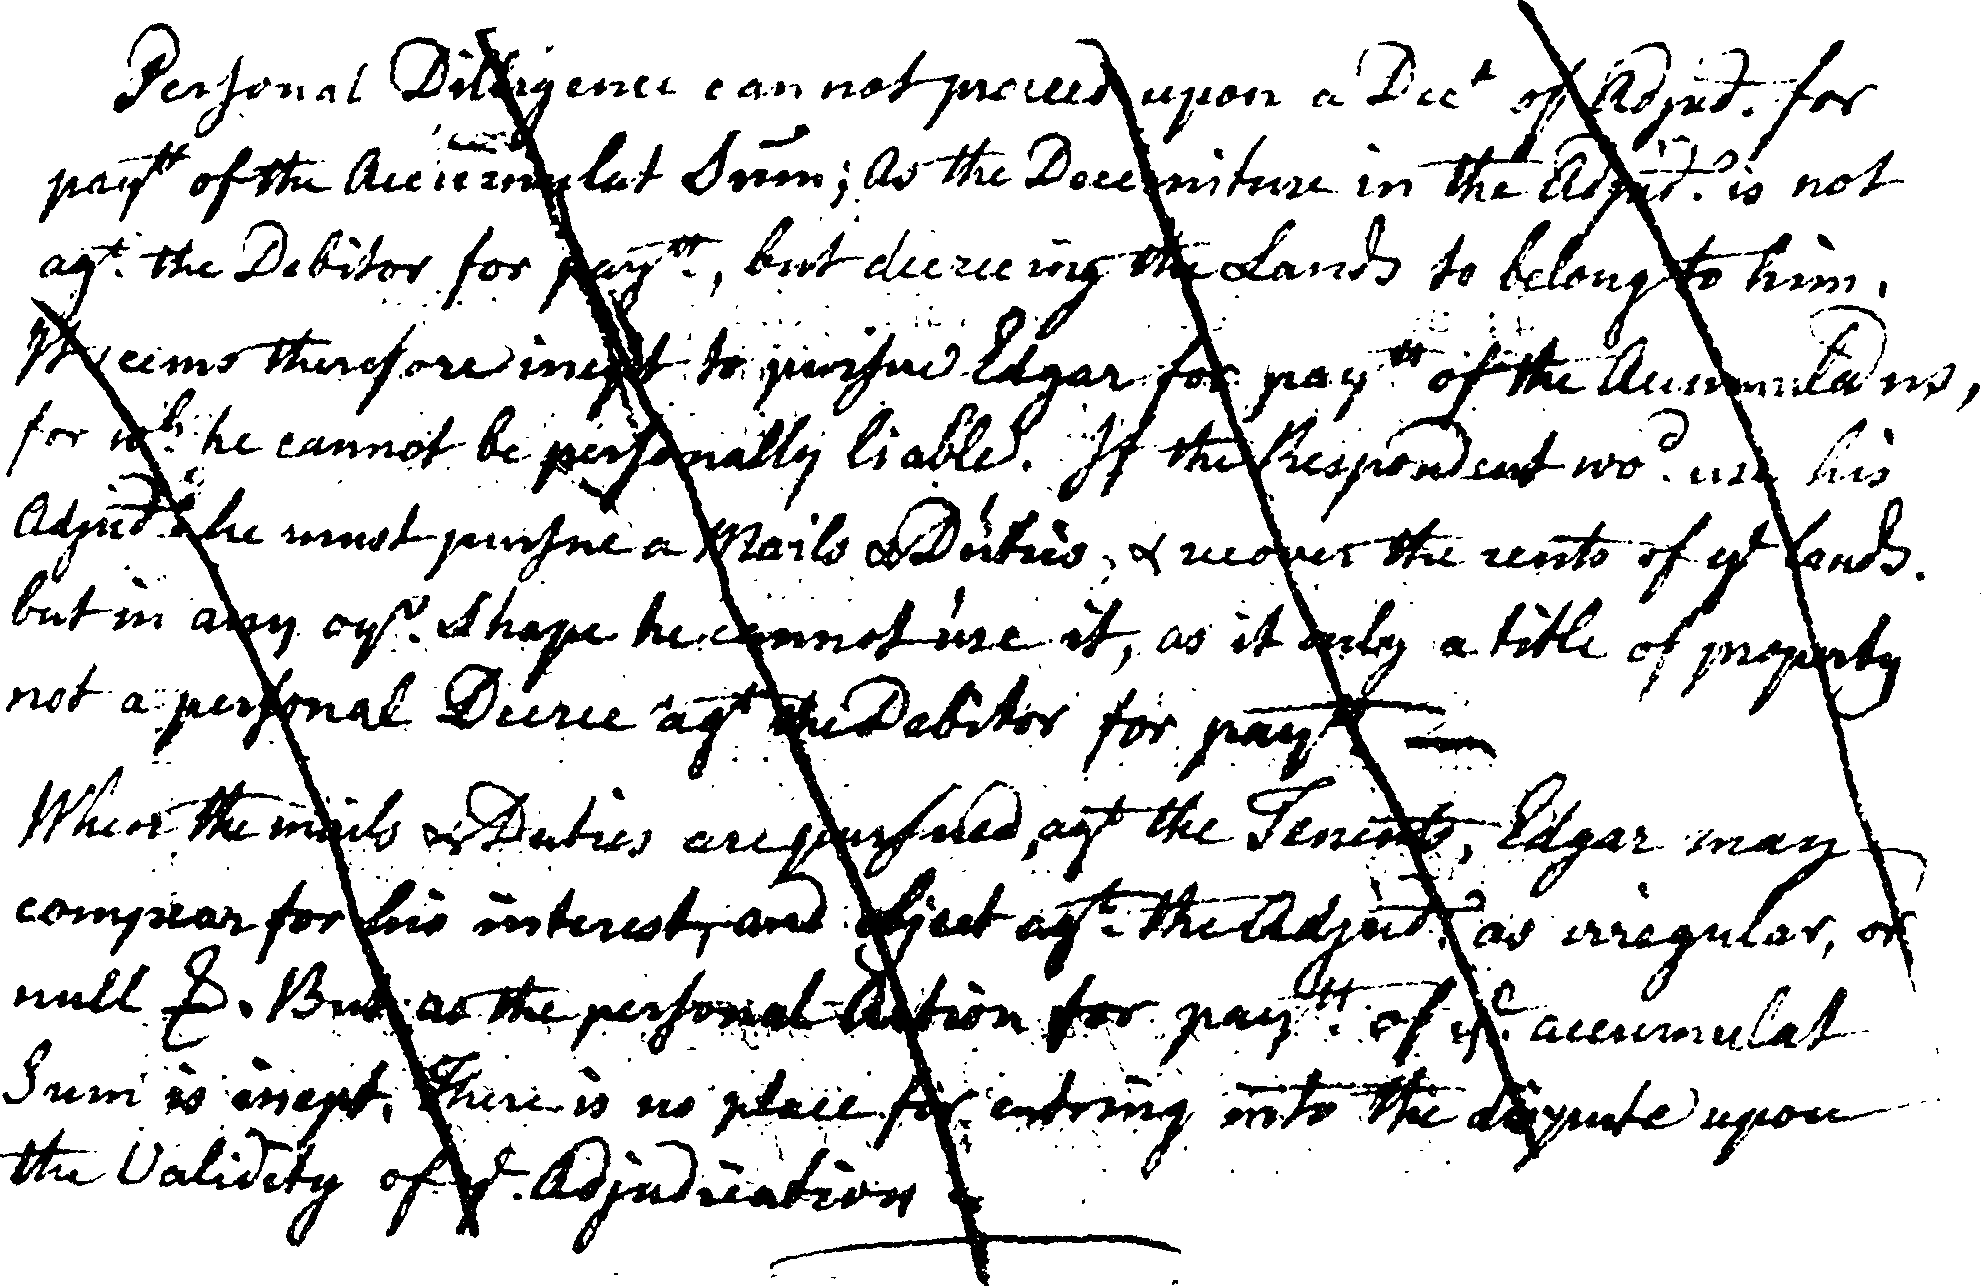 Personal Diligence cannot proceed upon a Dect of Adjud. for
paytt of the Accumulat Sum; as the Decerniture in the Adjud.n is not
agt. the Debitor for paytt., but decreeing the Lands to belong to him.
It seems therefore inept to pursue Edgar for paytt of the Accumulations,
for wh. he cannot be personally liable. If the Respondent wod. use his
Adjudn. he must pursue a Mails & Duties, & recover the rents of yt lands.
but in any oyr. Shape he cannot use it, as it only a title of property
not a personal Decree agt the Debitor for paytt.
When the mails & Duties are pursued, agt the Tenents, Edgar may
compear for his interest, and object agt. the Adjudn. as irregular, or
null &. But as the personal Action for paytt. of ye. accumulat
Sum is inept, There is no place for entring into the dispute upon
the Validity of yt. Adjudication